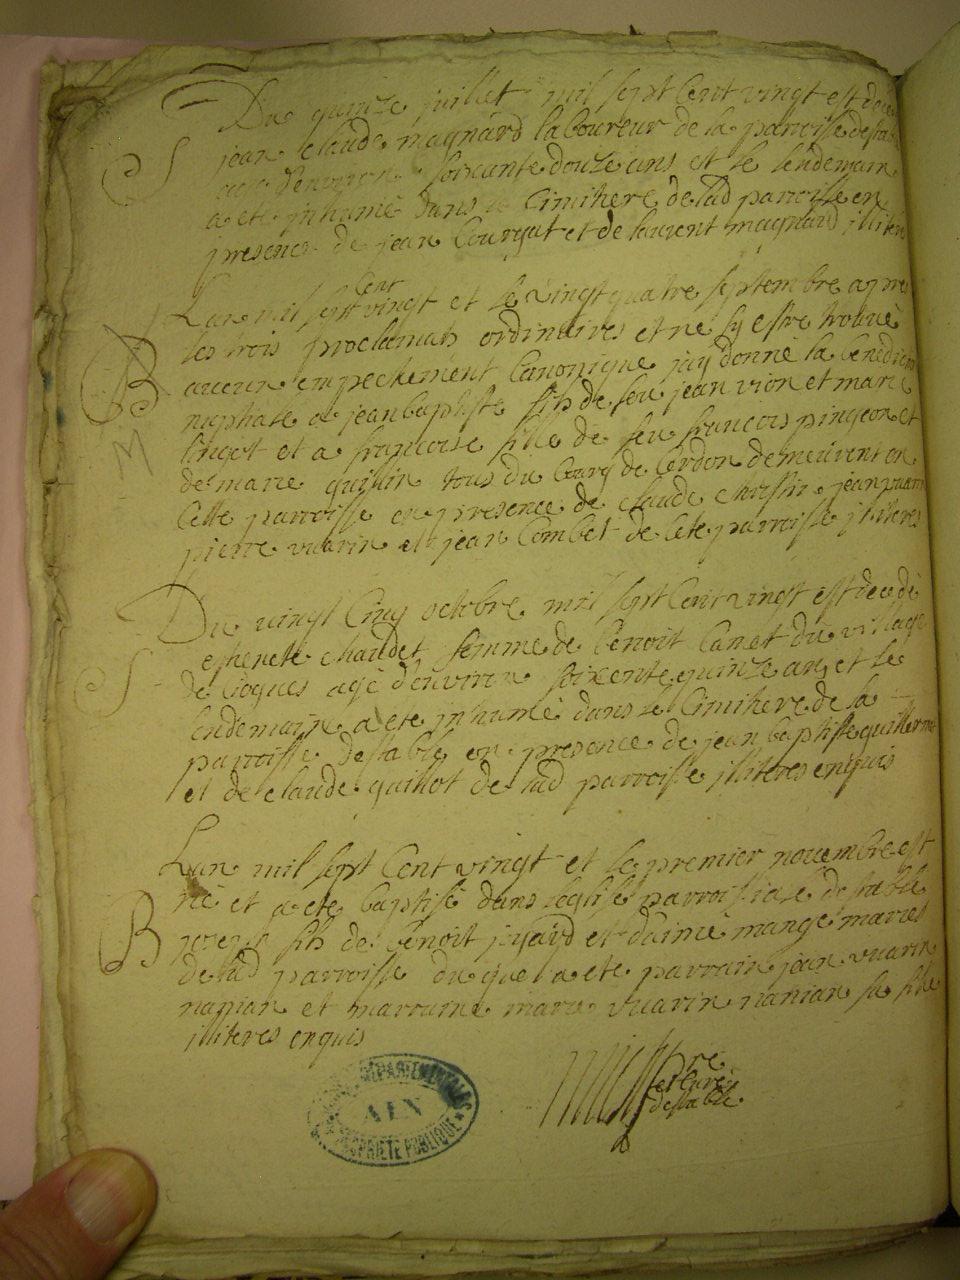 Du quinze juillet mil sept Cent vingt est decede
S jean claude magnard laboureur de la parroisse destable
agé denviron soixante douze ans et le lendemain
a eté jnhumé dans le Cimithere de lad parroisse en
presence de jean Courgut et de laurent magnard jlliteres
Cent
Lan mil sept vingt et le vingt quatre septembre apres
les trois proclamaos ordinaires et ne sy estre trouué
B aucun empechement Canonique jay donné la benediction
M nuptiale a jean baptiste fils de feu jean vion et marie
et a françoise fille de feu francois pingeon et
de marie guillin tous du bourg de Cerdon demeurent en
Cette parroisse en presence de claude
pierre vuarin et jean Combet de Cete parroisse jlliteres
Du vingt Cinq octobre mil sept Cent vingt est decedé
S estienete chaudet femme de benoit Canet du village
de Croques agé denviron soixente quinze ans et le
lendemain a eté jnhumé dans le Cimithere de la
parroisse destable en presence de jean baptiste
et de claude guillot de lad parroisse jlliteres enquis
Lan mil sept Cent vingt et le premier nouembre est
né et a eté baptisé dans leglise parroissiale destable
B joseph fils de benoit joyard et daimé mange mariés
de lad parroisse du quel a eté parrain jean vuarin
nanian et marraine marie vuarin nanian sa fille
jlliteres enquis
pre
et Curé
destable
ARCHIVES DÉPARTEMENTALES
AIN
PROPRIÉTÉ PUBLIQUE